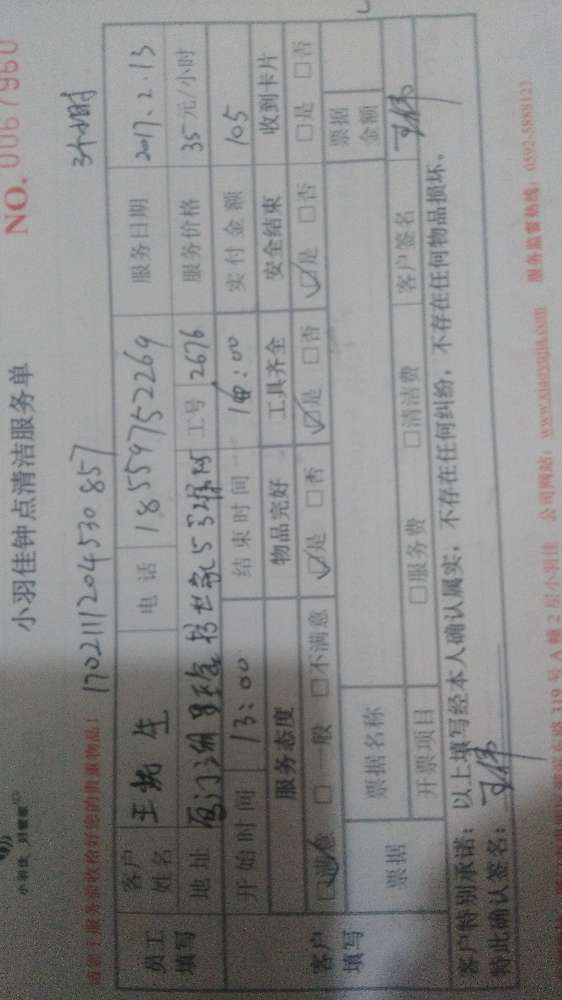 小羽佳钟点清洁服务单
NO. 0067960
请雇主服务前收检好您的贵重物品!
170211120453085 7
3个小时
员工填写
客户姓名 王 先 生 电话 18559752269 服务日期 2017.2.13
地址 厦门 工号 2676 服务价格 35元/小时
客户填写
开始时间 13:00 结束时间 16:00 实付金额 105
服务态度 物品完好 工具齐全 安全结束 收到卡片
☑满意 □一般 □不满意 ☑是 □否 ☑是 □否 ☑是 □否 □是 □否
票据 票据名称 票据金额
开票项目 □服务费 □清洁费 客户签名
客户特别承诺:以上填写经本人确认属实,不存在任何纠纷,不存在任何物品损坏。
特此确认签名:
319号A幢2层小羽佳 公司网站:www.xiaoyujia.com 服务监督热线:0592-5888123